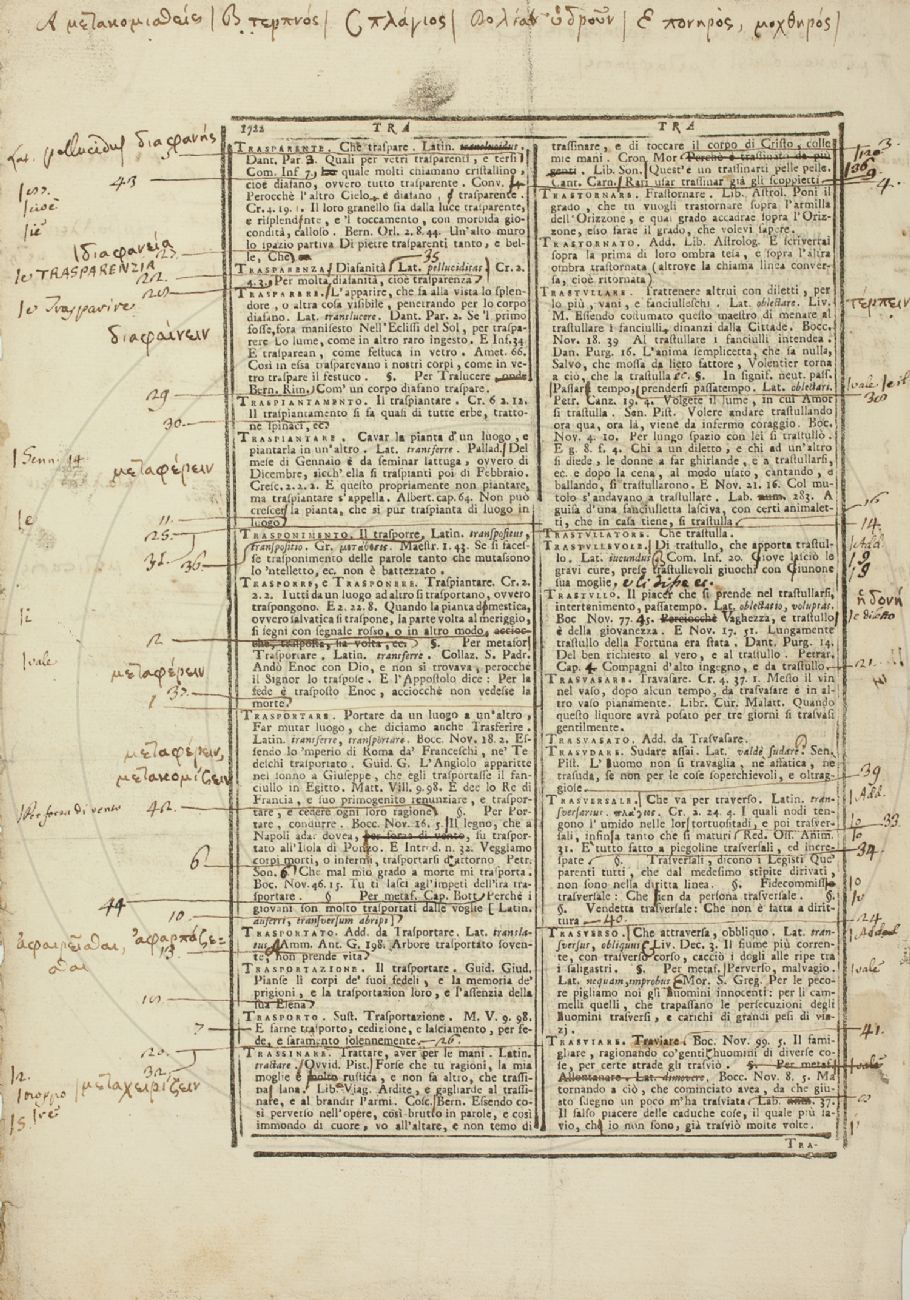 A μετακομιαθείς | B τερπνός | C πλάγιος | E πονηρὸς, μοχθηρός
1722 TRA TRA
Lat. pellucidus διαφανής
43
cioè
è
διαφάνεια
TRASPARENZIA
Trasparire
διαφαίνειν
29
30
Senn. 14
μεταφέρειν
11.
25.
36
2
vale
μεταφέρειν
μεταφέρειν,
μετακομίζειν
Per forza di vento 42.
6
44
10
ἀφαιρεῖσθαι, ἀφαρπάζε=
σθαι
13.
7
20.
32
12.
μεταχειρίζειν
TRASPARENTE. Che traspare. Latin.
Dant. Par 3. Quali per vetri trasparenti, e tersi
Com. Inf 7, quale molti chiamano cristallino,
cioè diafano, ovvero tutto trasparente. Conv.
Perocchè l'altro Cielo è diafano, trasparente.
Cr. 4. 19. 1. Il loro granello sia dalla luce trasparente,
e risplendente, e 'l toccamento, con morbida gio-
condità, calloso. Bern. Orl. 2. 8. 44. Un'alto muro
lo spazio partiva Di pietre trasparenti tanto, e bel-
le, Che 35
TRASPARENZA Diafanità Lat. pelluciditas Cr. 2.
4. 3. Per molta diafanità, cioè trasparenza
TRASPARERE L'apparire, che fa alla vista lo splen-
dore, o altra cosa visibile, penetrando per lo corpo
diafano. Lat. translucere. Dant. Par. 2. Se 'l primo
fosse, fora manifesto Nell'Eclissi del Sol, per traspa-
rere Lo lume, come in altro raro ingesto. E Inf. 34.
E trasparean, come festuca in vetro. Amet. 66.
Così in essa trasparevano i nostri corpi, come in ve-
tro traspare il festuco. §. Per Tralucere
Bern. Rim. Com' un corpo diafano traspare.
TRASPIANTAMENTO. Il traspiantare. Cr. 6 2. 12.
Il traspiantamento si fa quasi di tutte erbe, tratto-
ne spinaci, ec.
TRASPIANTARE. Cavar la pianta d'un luogo, e
piantarla in un'altro. Lat. transferre. Pallad. Del
mese di Gennaio è da seminar lattuga, ovvero di
Dicembre, sicch' ella si traspianti poi di Febbraio.
Cresc. 2. 2. 2. E questo propriamente non piantare,
ma traspiantare s'appella. Albert. cap. 64. Non può
crescer la pianta, che si pur traspianta di luogo in
luogo
TRASPONIMENTO. Il trasporre, Latin. transpositus,
transpositio. Gr. μετάθεσις. Maestr. 1. 43. Se si faces-
se trasponimento delle parole tanto che mutassono
lo 'ntelletto, ec. non è battezzato.
TRASPORRE, e TRASPONERE. Traspiantare. Cr. 2.
2. 2. Tutti da un luogo ad altro si trasportano, ovvero
traspongono. E 2. 22. 8. Quando la pianta dimestica,
ovvero salvatica si traspone, la parte volta al meriggio,
si segni con segnale rosso, o in altro modo, accioc-
chè, trasposta, ha volta, ec. §. Per metafor
Trasportare Latin. transferre. Collaz. S. Padr.
Andò Enoc con Dio, e non si trovava, perocchè
il Signor lo traspose. E l'Appostolo dice: Per la
fede è trasposto Enoc, acciocchè non vedesse la
morte.
TRASPORTARE. Portare da un luogo a un'altro,
Far mutar luogo, che diciamo anche Trasferire.
Latin. transferre, transportare. Bocc. Nov. 18. 2. Es-
sendo lo 'mperio di Roma da' Franceschi, ne' Te-
deschi trasportato. Guid. G. L'Angiolo apparitte
nel sonno a Giuseppe, che egli trasportasse il fan-
ciullo in Egitto. Matt. Vill. 9. 98. E dec lo Re di
Francia, e suo primogenito renunziare, e traspor-
tare, e cedere ogni loro ragione §. Per Por-
tare, condurre. Bocc. Nov. 16. 5. Il legno, che a
Napoli andar dovea, per forza di vento, fu traspor-
tato all'Isola di Ponzo. E Introd. n. 32. Veggiamo
corpi morti, o infermi, trasportarsi d'attorno Petr.
Son. 6 Che mal mio grado a morte mi trasporta.
Bocc. Nov. 46. 15. Tu ti lasci agl'impeti dell'ira tra-
sportare. § Per metaf. Cap. Bott. Perchè i
giovani son molto trasportati dalle voglie Latin.
auferri, transversum abripi
TRASPORTATO. Add. da Trasportare. Lat. transla-
tus Amm. Ant. G. 198. Arbore trasportato soven-
te, non prende vita
TRASPORTAZIONE. Il trasportare. Guid. Giud.
Pianse li corpi de' suoi fedeli, e la memoria de'
prigioni, e la trasportazion loro, e l'assenzia della
sua Elena
TRASPORTO. Sust. Trasportazione. M. V. 9. 98.
E farne trasporto, cedizione, e lasciamento, per fe-
de, e saramento solennemente. 26.
TRASSINARE. Trattare, aver per le mani. Latin.
tractare. Ovvid. Pist. Forse che tu ragioni, la mia
moglie è molto rustica, e non fa altro, che trassi-
nar lana. Lib. Viag. Ardite, e gagliarde al trassi-
nare, e al brandir l'armi. Cosc. Bern. Essendo co-
sì perverso nell'opere, così brutto in parole, e così
immondo di cuore, vo all'altare, e non temo di
trassinare, e di toccare il corpo di Cristo, colle
mie mani. Cron. Mor Perchè è trassinata da più
genti. Lib. Son. Quest'è un trassinarti pelle pelle.
Cant. Carn. Rari usar trassinar già gli scoppietti
TRASTORNARE. Frastornare. Lib. Astrol. Poni il
grado, che tu vuogli trastornare sopra l'armilla
dell'Orizzone, e quai grado accadrae sopra l'Oriz-
zone, esso sarae il grado, che volevi sapere.
TRASTORNATO. Add. Lib. Astrolog. E scriverrai
sopra la prima di loro ombra tesa, e sopra l'altra
ombra trastornata (altrove la chiama linea conver-
sa, cioè ritornata)
TRASTULLARE. Trattenere altrui con diletti, per
lo più, vani, e fanciulleschi. Lat. oblectare. Liv.
M. Essendo costumato questo maestro di menare al
trastullare i fanciulli, dinanzi dalla Cittade. Bocc.
Nov. 18. 39 Al trastullare i fanciulli intendea.
Dan. Purg. 16. L'anima semplicetta, che sa nulla,
Salvo, che mossa da lieto fattore, Volentier torna
a ciò, che la trastulla ec. §. In signif. neut. pass.
Passar tempo, prendersi passatempo. Lat. oblectari.
Petr. Canz. 19. 4. Volgete il lume, in cui Amor
si trastulla. Sen. Pist. Volere andare trastullando
ora qua, ora là, viene da infermo coraggio. Boc.
Nov. 4. 10. Per lungo spazio con lei si trastullò.
E g. 8. f. 4. Chi a un diletto, e chi ad un'altro
si diede, le donne a far ghirlande, e a trastullarsi,
ec. e dopo la cena, al modo usato, cantando, e
ballando, si trastullarono. E Nov. 21. 16. Col mu-
tolo s'andavano a trastullare. Lab. num. 283. A
guisa d'una fanciulletta lasciva, con certi animalet-
ti, che in casa tiene, si trastulla
TRASTULLATORE. Che trastulla.
TRASTULLEVOLE. Di trastullo, che apporta trastul-
lo. Lat. iucundus Com. Inf. 20. Giove lasciò le
gravi cure, prese trastullevoli giuochi con Giunone
sua moglie,
TRASTULLO. Il piacer che si prende nel trastullarsi,
intertenimento, passatempo. Lat. oblectatio, voluptas.
Boc Nov. 77. 45. Perciocchè Vaghezza, e trastullo
è della giovanezza. E Nov. 17. 51. Lungamente
trastullo della Fortuna era stata. Dant. Purg. 14.
Del ben richiesto al vero, e al trastullo. Petrar.
Cap. 4. Compagni d'alto ingegno, e da trastullo.
TRASVASARE. Travasare. Cr. 4. 37. 1. Messo il vin
nel vaso, dopo alcun tempo, da trasvasare è in al-
tro vaso pianamente. Libr. Cur. Malatt. Quando
questo liquore avrà posato per tre giorni si trasvasi
gentilmente.
TRASVASATO. Add. da Trasvasare.
TRASUDARE. Sudare assai. Lat. valdè sudare. Sen.
Pist. L'uomo non si travaglia, nè affatica, nè
trasuda, se non per le cose soperchievoli, e oltrag-
giose.
TRASVERSALE. Che va per traverso. Latin. tran-
sversarius. πλάγιος. Cr. 2. 24. 4. I quali nodi ten-
gono l'umido nelle lor tortuositadi, e poi trasver-
sali, insino a tanto che si maturi Red. Oss. Anim.
31. E tutto fatto a piegoline trasversali, ed incre-
spate §. Trasversali, dicono i Legisti Que'
parenti tutti, che dal medesimo stipite dirivati,
non sono nella diritta linea. §. Fidecommisso
trasversale: Che vien da persona trasversale. §.
§. Vendetta trasversale: Che non è fatta a dirit-
tura 40.
TRASVERSO. Che attraversa, obbliquo. Lat. tran-
sversus, obliquus Liv. Dec. 3. Il fiume più corren-
te, con trasverso corso, cacciò i dogli alle ripe tra
i saligastri. §. Per metaf. Perverso, malvagio.
Lat. nequam, improbus Mor. S. Greg. Per le peco-
re pigliamo noi gli uomini innocenti: per li cam-
melli quelli, che trapassano le persecuzioni degli
uomini trasversi, e carichi di grandi pesi di via-
zj.
TRASVIARE. Traviare. Boc. Nov. 99. 5. Il fami-
gliare, ragionando co' gentili huomini di diverse co-
se, per certe strade gli trasviò. §. Per metaf
Allontanare. Lat. dimovere. Bocc. Nov. 8. 5. Ma
tornando a ciò, che cominciato avea, da che giu-
sto sdegno un poco m'ha trasviata Lab. num. 37.
Il falso piacere delle caduche cose, il quale più sa-
vio, che io non sono, già trasviò molte volte.
TRA-
3.
9.
4.
τερπειν
30
16
14.
Add.
19
ἡδονή
e diletto
21.
39
Add.
33.
34
24
vale
41.
vale